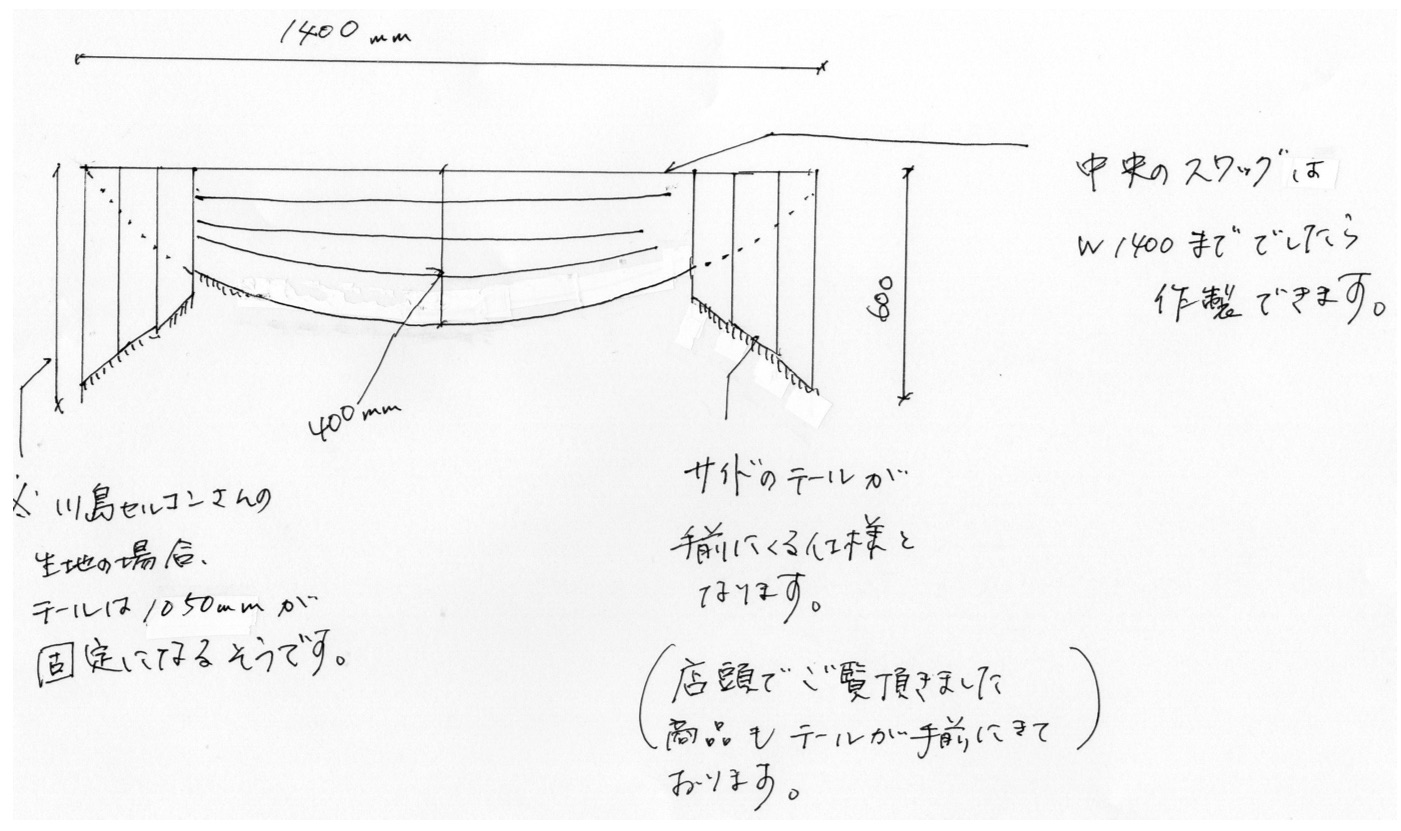 1400 mm
中央のスワッグは
W1400まででしたら
作製できます。
600
400 mm
※川島セルコンさんの
生地の場合、
テールは1050mmが
固定になるそうです。
サイドのテールが
手前にくる仕様と
なります。
(店頭でご覧頂きました
商品もテールが手前にきて
おります。)